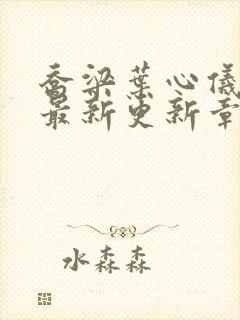 乔梁叶心仪
最新更新章
水森森